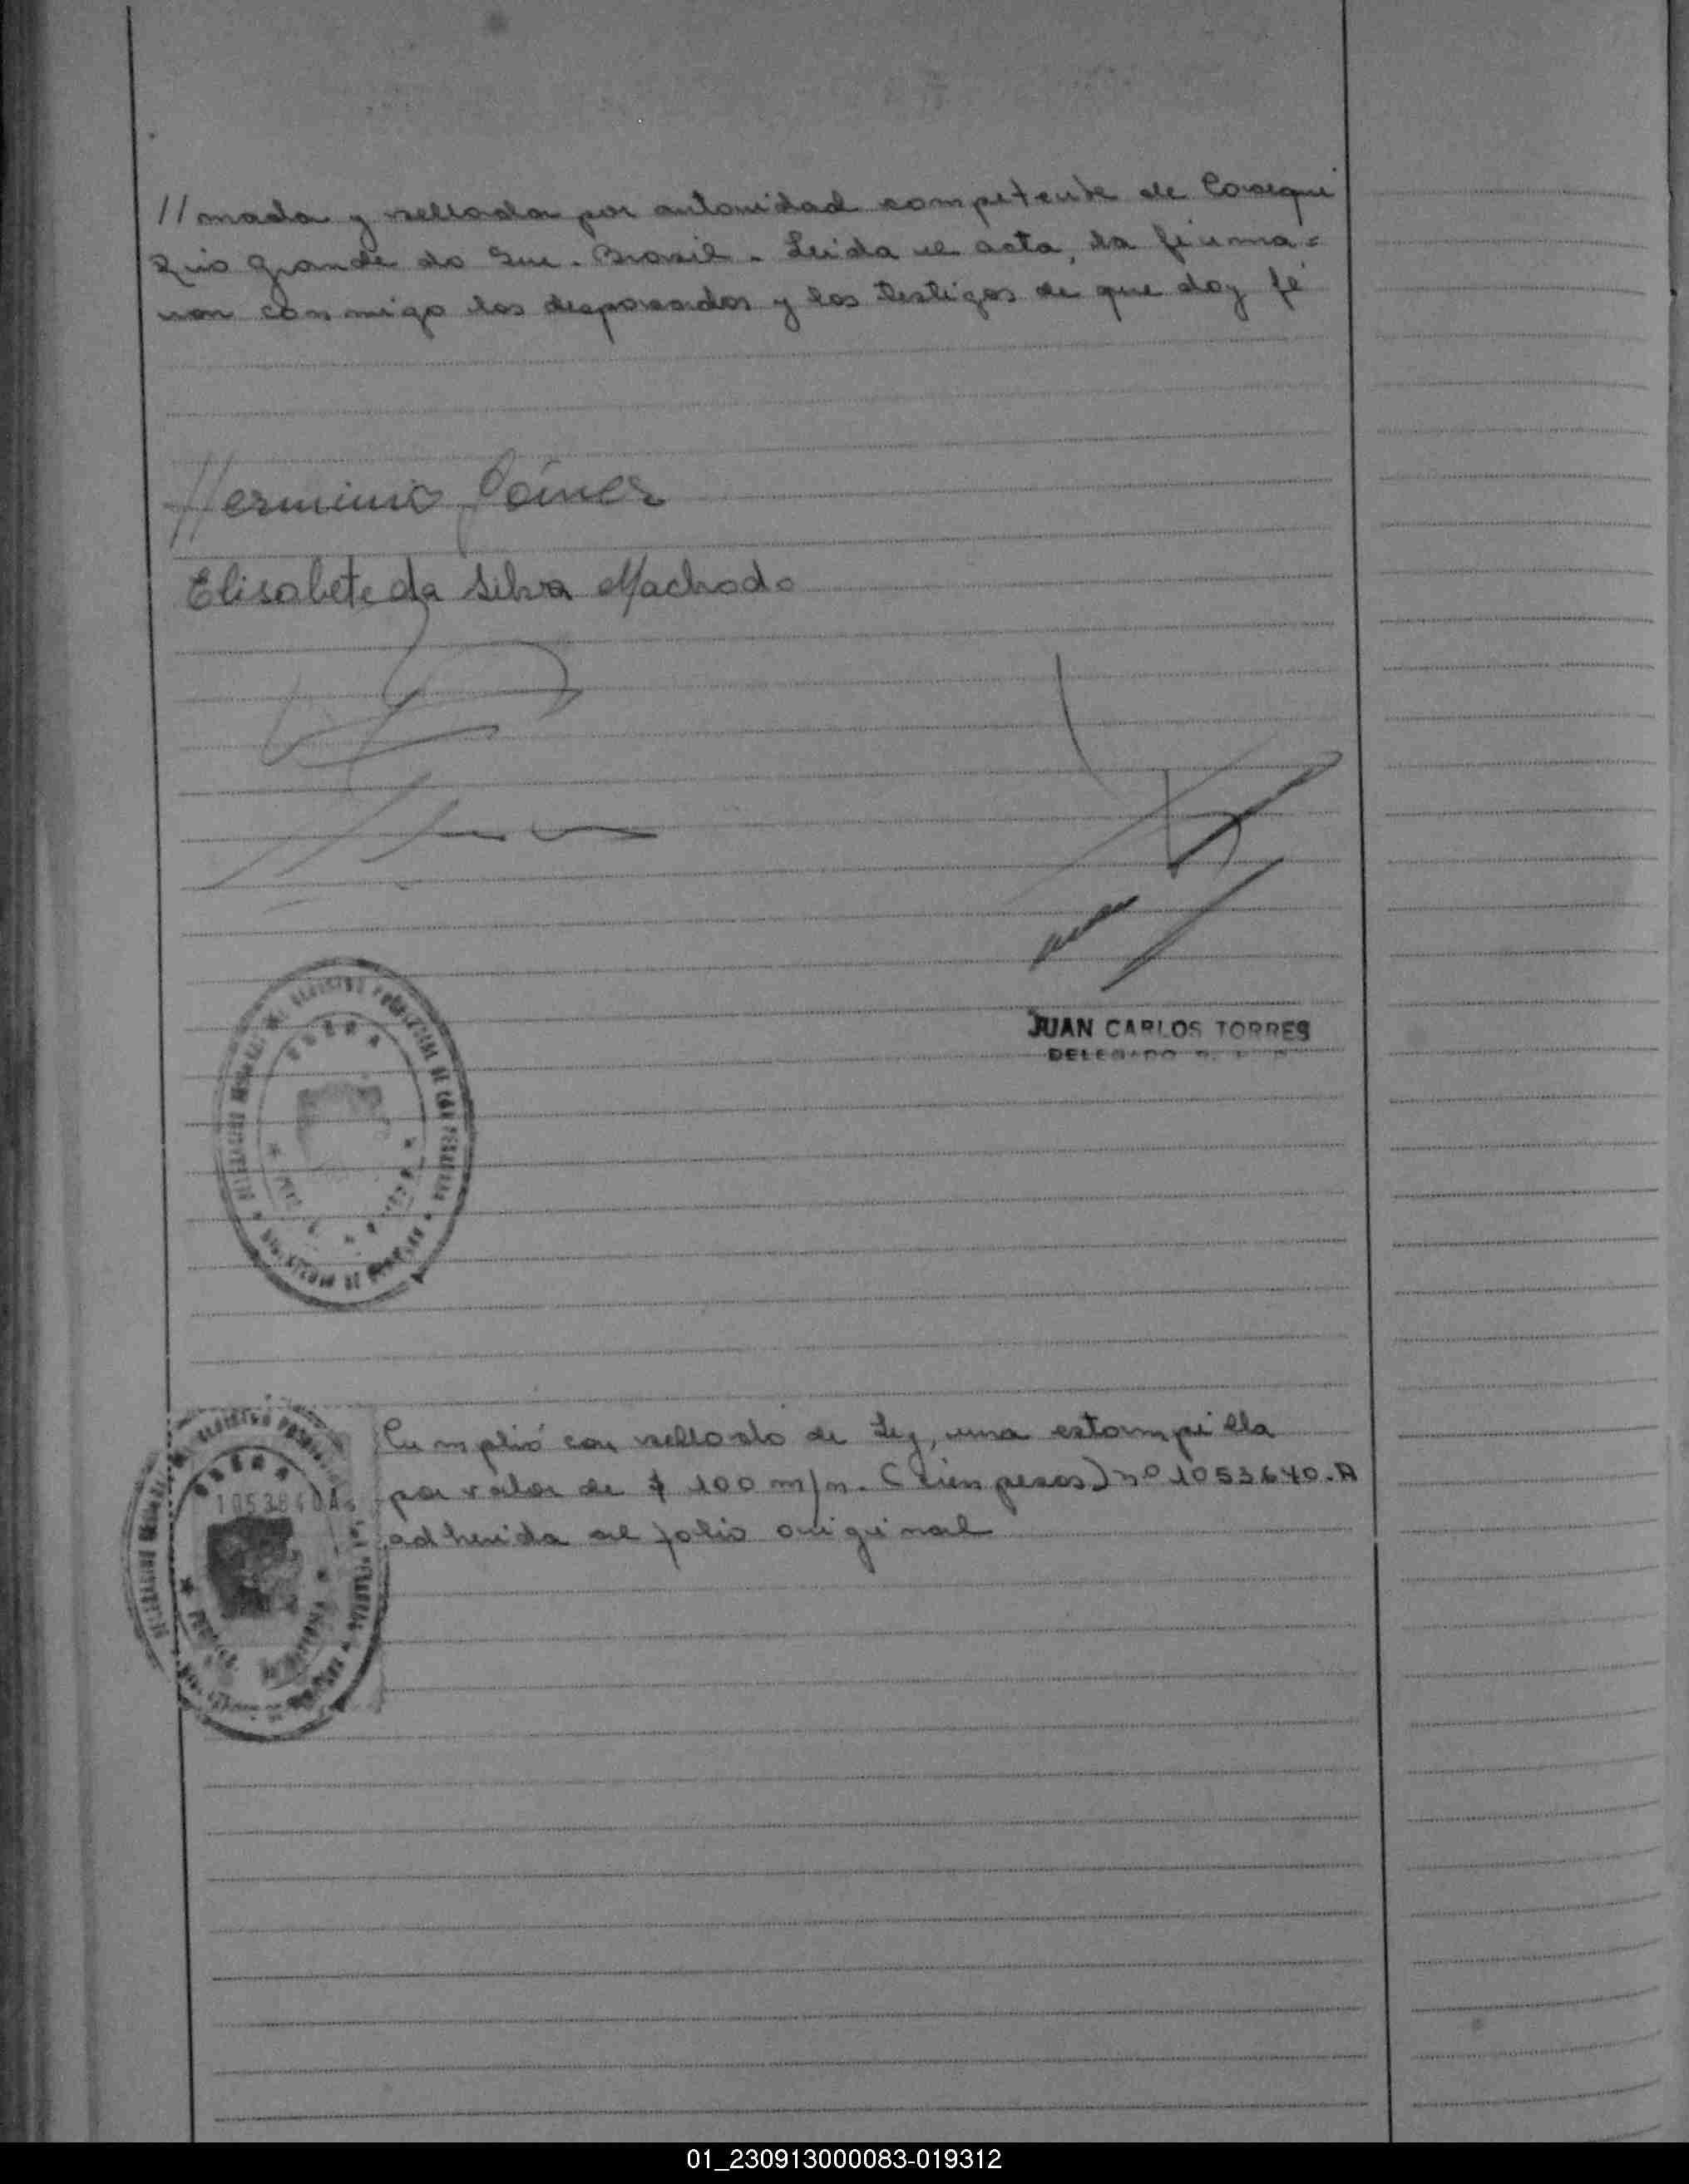 //mada y sellada por autoridad competente de Caraegui
Rio Grande do Sul. Brasil. Leida el acta, la firma=
ron conmigo los desposados y los testigos de que doy fé
Herminio Gómez
Elisabete da Silva Machado
JUAN CARLOS TORRES
DELEGADO
OBERA
Cumplió con sellado de Ley, una estampilla
por valor de $ 100 m/n. (cien pesos) nº 1053640.A
adherida al folio original
OBERA
1053640A
01_230913000083-019312